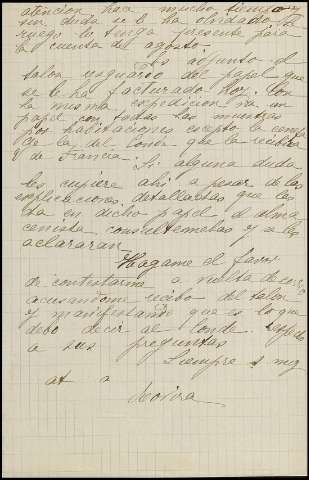 atencion hace mucho tiempo y
sin duda se le ha olvidado. Le
ruego lo tenga presente para
la cuenta del agosto.
Es adjunto el
talon resguardo del papel que
se le ha facturado hoy. Con
la misma expedicion va un
papel con todas las muestras
por habitaciones excepto la
de la del conde que la recibirá
de Francia. Si alguna duda
les cupiere ahi a pesar de las
explicaciones detalladas que
en dicho papel el alma
cenista consultemelas y a les
aclararan
Hagame el favor
de contestarme a vuelta de
acusandome recibo del talon
y manifestando que es lo que
debo decir al conde respecto
a sus preguntas
Siempre s
at a